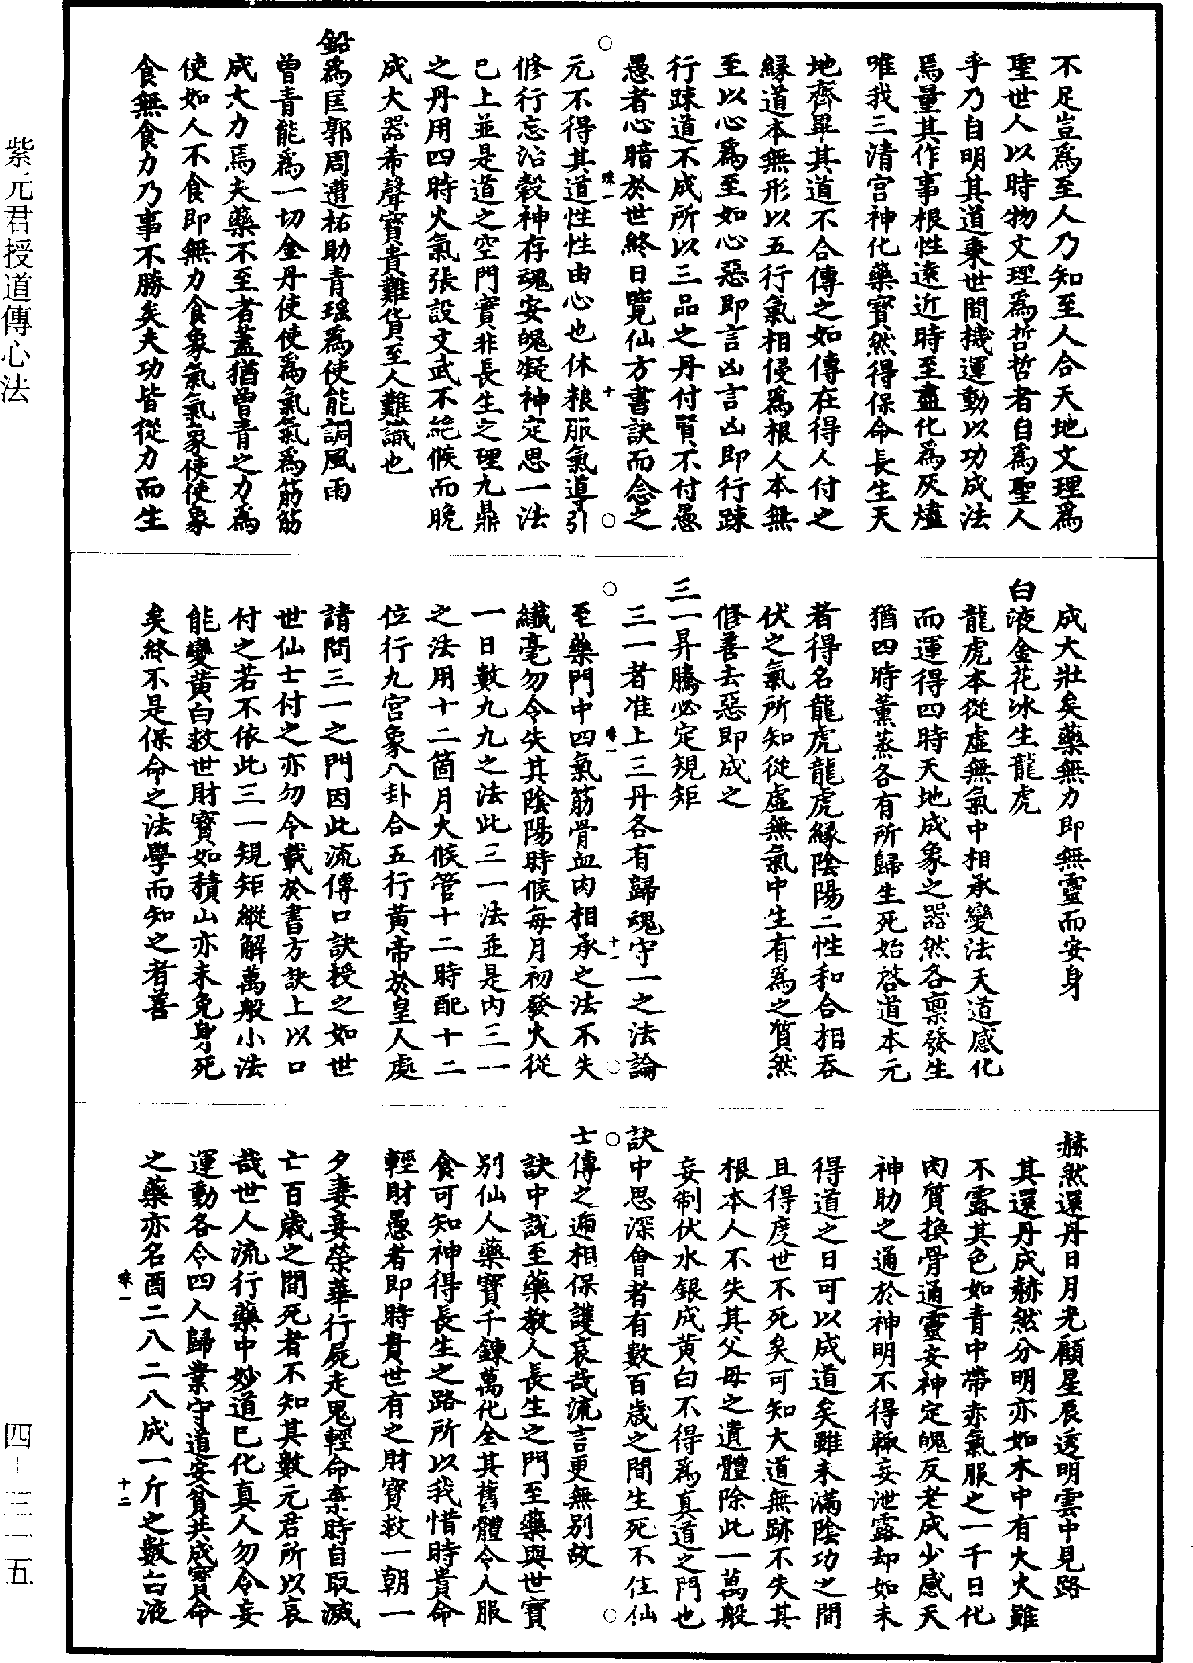 紫元君授道傳心法
不足豈爲至人乃知至人合天地文理爲
聖世人以時物文理爲哲哲者自爲聖人
乎乃自明其道棄世間機運動以功成法
焉量其作事根性遠近時至盡化爲灰燼
唯我三清宫神化藥寶然得保命長生天
地齊畢其道不合傳之如傳在得人付之
緣道本無形以五行氣相侵爲根人本無
至以心爲至如心惡即言凶言凶即行踈
行踈道不成所以三品之丹付賢不付愚
愚者心暗於世終日覽仙方書訣而念之
元不得其道性性由心也休粮服氣導引
修行忘治穀神存魂安魄凝神定思一法
已上並是道之空門實非長生之理九鼎
之丹用四時火氣張設文武不絶候而晚
成大器希聲寶貴難貨至人難識也
鉛爲匡郭周遭祐助青瑶爲使能調風雨
曾青能爲一切金丹使使爲氣氣爲筋筋
成大力焉夫藥不至者蓋猶曾青之力爲
使如人不食即無力食象氣氣象使使象
食無食力乃事不勝矣夫功皆從力而生
成大壯矣藥無力即無靈而安身
白液金花冰生龍虎
龍虎本從虚無氣中相承變法天道感化
而運得四時天地成象之器然各禀發生
猶四時薰蒸各有所歸生死始啓道本元
者得名龍虎龍虎緣陰陽二性和合相吞
伏之氣所知從虚無氣中生有爲之質然
修善去惡即成之
三一昇騰必定規矩
三一者准上三丹各有歸魂守一之法論
至藥門中四氣筋骨血肉相承之法不失
纖毫勿令失其陰陽時候每月初發火從
一日數九九之法此三一法並是内三一
之法用十二箇月火候管十二時配十二
位行九宫象八卦合五行黄帝於皇人處
請問三一之門因此流傳口訣授之如世
世仙士付之亦勿令載於書方訣上以口
付之若不依此三一規矩縱解萬般小法
能變黄白救世財寶如積山亦未免身死
矣終不是保命之法學而知之者善
赫然還丹日月光顧星辰透明雲中見路
其還丹成赫然分明亦如木中有火火雖
不露其色如青中帶赤氣服之一千日化
肉質換骨通靈安神定魄反老成少感天
神助之通於神明不得輒妄泄露却如未
得道之日可以成道矣雖未滿陰功之間
且得度世不死矣可知大道無跡不失其
根本人不失其父母之遺體除此一萬般
妄制伏水銀成黄白不得爲真道之門也
訣中思深會者有數百歲之間生死不住仙
士傳之遞相保護哀哉流言更無別故
訣中説至藥教人長生之門至藥與世寶
別仙人藥寶千鍊萬化全其舊體令人服
食可知神得長生之路所以我惜時貴命
輕財愚者即時貴世有之財寶救一朝一
夕妻妾榮華行屍走鬼輕命棄時自取滅
亡百歲之間死者不知其數元君所以哀
哉世人流行藥中妙道已化真人勿令妄
運動各令四人歸業守道安貧共成寶命
之藥亦名酉二八二八成一斤之數白液
味一
十
味一
十一
味一
十二
四—三二五